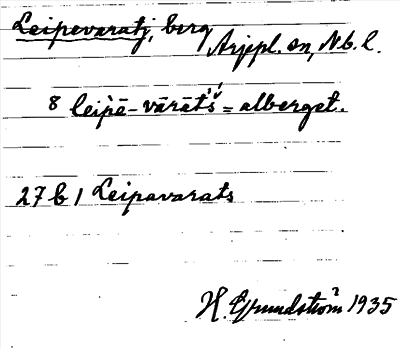 Leipevaratj, berg
Arjepl. sn, N.b.l.
8 leip̄ē-vārāt́š́ = alberget.
27 b 1 Leipavarats
H. Grundström 1935